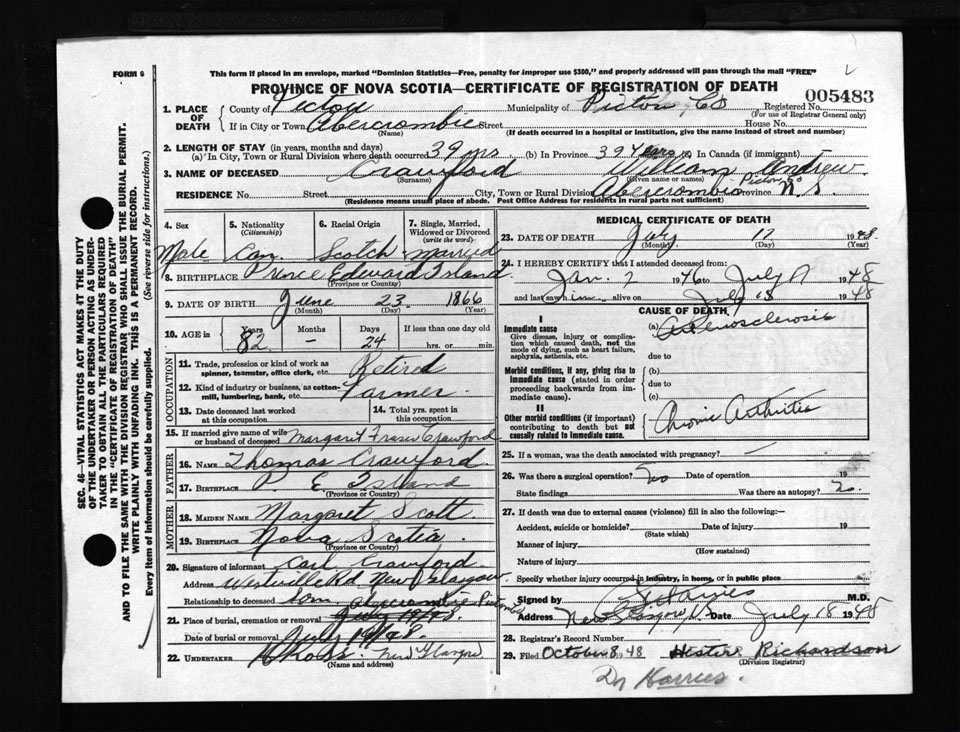 FORM 6
This form if placed in an envelope, marked "Dominion Statistics—Free, penalty for improper use $300," and properly addressed will pass through the mail "FREE"
PROVINCE OF NOVA SCOTIA—CERTIFICATE OF REGISTRATION OF DEATH
005483
1. PLACE OF DEATH
County of Pictou Municipality of Pictou Co Registered No.
(For use of Registrar General only)
If in City or Town Abercrombie Street House No.
(Name) (If death occurred in a hospital or institution, give the name instead of street and number)
2. LENGTH OF STAY (in years, months and days)
(a) In City, Town or Rural Division where death occurred 39 yrs (b) In Province 39 years In Canada (if immigrant)
3. NAME OF DECEASED Crawford William Andrew
(Surname) (Given name or names)
RESIDENCE No. Street City, Town or Rural Division Abercrombie Pictou Co Province N. S.
(Residence means usual place of abode. Post Office Address for residents in rural parts not sufficient)
4. Sex
Male
5. Nationality
(Citizenship)
Can.
6. Racial Origin
Scotch
7. Single, Married, Widowed or Divorced
(write the word)
Married
8. BIRTHPLACE Prince Edward Island
(Province or Country)
9. DATE OF BIRTH June 23 1866
(Month) (Day) (Year)
10. AGE in
Years Months Days If less than one day
82 – 24 hrs. or min.
OCCUPATION
11. Trade, profession or kind of work as spinner, teamster, office clerk, etc. Retired
12. Kind of industry or business, as cotton-mill, lumbering, bank, etc. Farmer
13. Date deceased last worked at this occupation
14. Total yrs. spent in this occupation
15. If married give name of wife or husband of deceased Margaret Fraser Crawford
FATHER
16. NAME Thomas Crawford
17. BIRTHPLACE P. E. Island
(Province or Country)
MOTHER
18. MAIDEN NAME Margaret Scott
19. BIRTHPLACE Nova Scotia
(Province or Country)
20. Signature of informant Carl Crawford
Address Westville Rd New Glasgow
Relationship to deceased Son
21. Place of burial, cremation or removal Abercrombie Pictou Co
Date of burial or removal July 1948
22. UNDERTAKER New Glasgow
(Name and address)
MEDICAL CERTIFICATE OF DEATH
23. DATE OF DEATH July 17 1948
(Month) (Day) (Year)
24. I HEREBY CERTIFY that I attended deceased from:
Jan. 2 1946 to July 17 1948
and last saw him alive on July 1948
CAUSE OF DEATH
I
Immediate cause
Give disease, injury or complication which caused death, not the mode of dying, such as heart failure, asphyxia, asthenia, etc.
(a) Arteriosclerosis
due to
Morbid conditions, if any, giving rise to immediate cause (stated in order proceeding backwards from immediate cause).
(b)
due to
(c)
II
Other morbid conditions (if important) contributing to death but not causally related to immediate cause.
Chronic Arthritis
25. If a woman, was the death associated with pregnancy? –
26. Was there a surgical operation? No Date of operation 19
State findings Was there an autopsy?
27. If death was due to external causes (violence) fill in also the following:—
Accident, suicide or homicide? Date of injury 19
(State which)
Manner of injury
(How sustained)
Nature of injury
Specify whether injury occurred in industry, in home, or in public place
Signed by Harries M.D.
Address New Glasgow Date July 18 1948
28. Registrar's Record Number
29. Filed October 8 1948 Hester Richardson
(Division Registrar)
Dr Harries.
SEC. 46—VITAL STATISTICS ACT MAKES IT THE DUTY
OF THE UNDERTAKER OR PERSON ACTING AS UNDER-
TAKER TO OBTAIN ALL THE PARTICULARS REQUIRED
IN THE "CERTIFICATE OF REGISTRATION OF DEATH"
AND TO FILE THE SAME WITH THE DIVISION REGISTRAR WHO SHALL ISSUE THE BURIAL PERMIT.
WRITE PLAINLY WITH UNFADING INK. THIS IS A PERMANENT RECORD.
Every item of information should be carefully supplied. (See reverse side for instructions.)